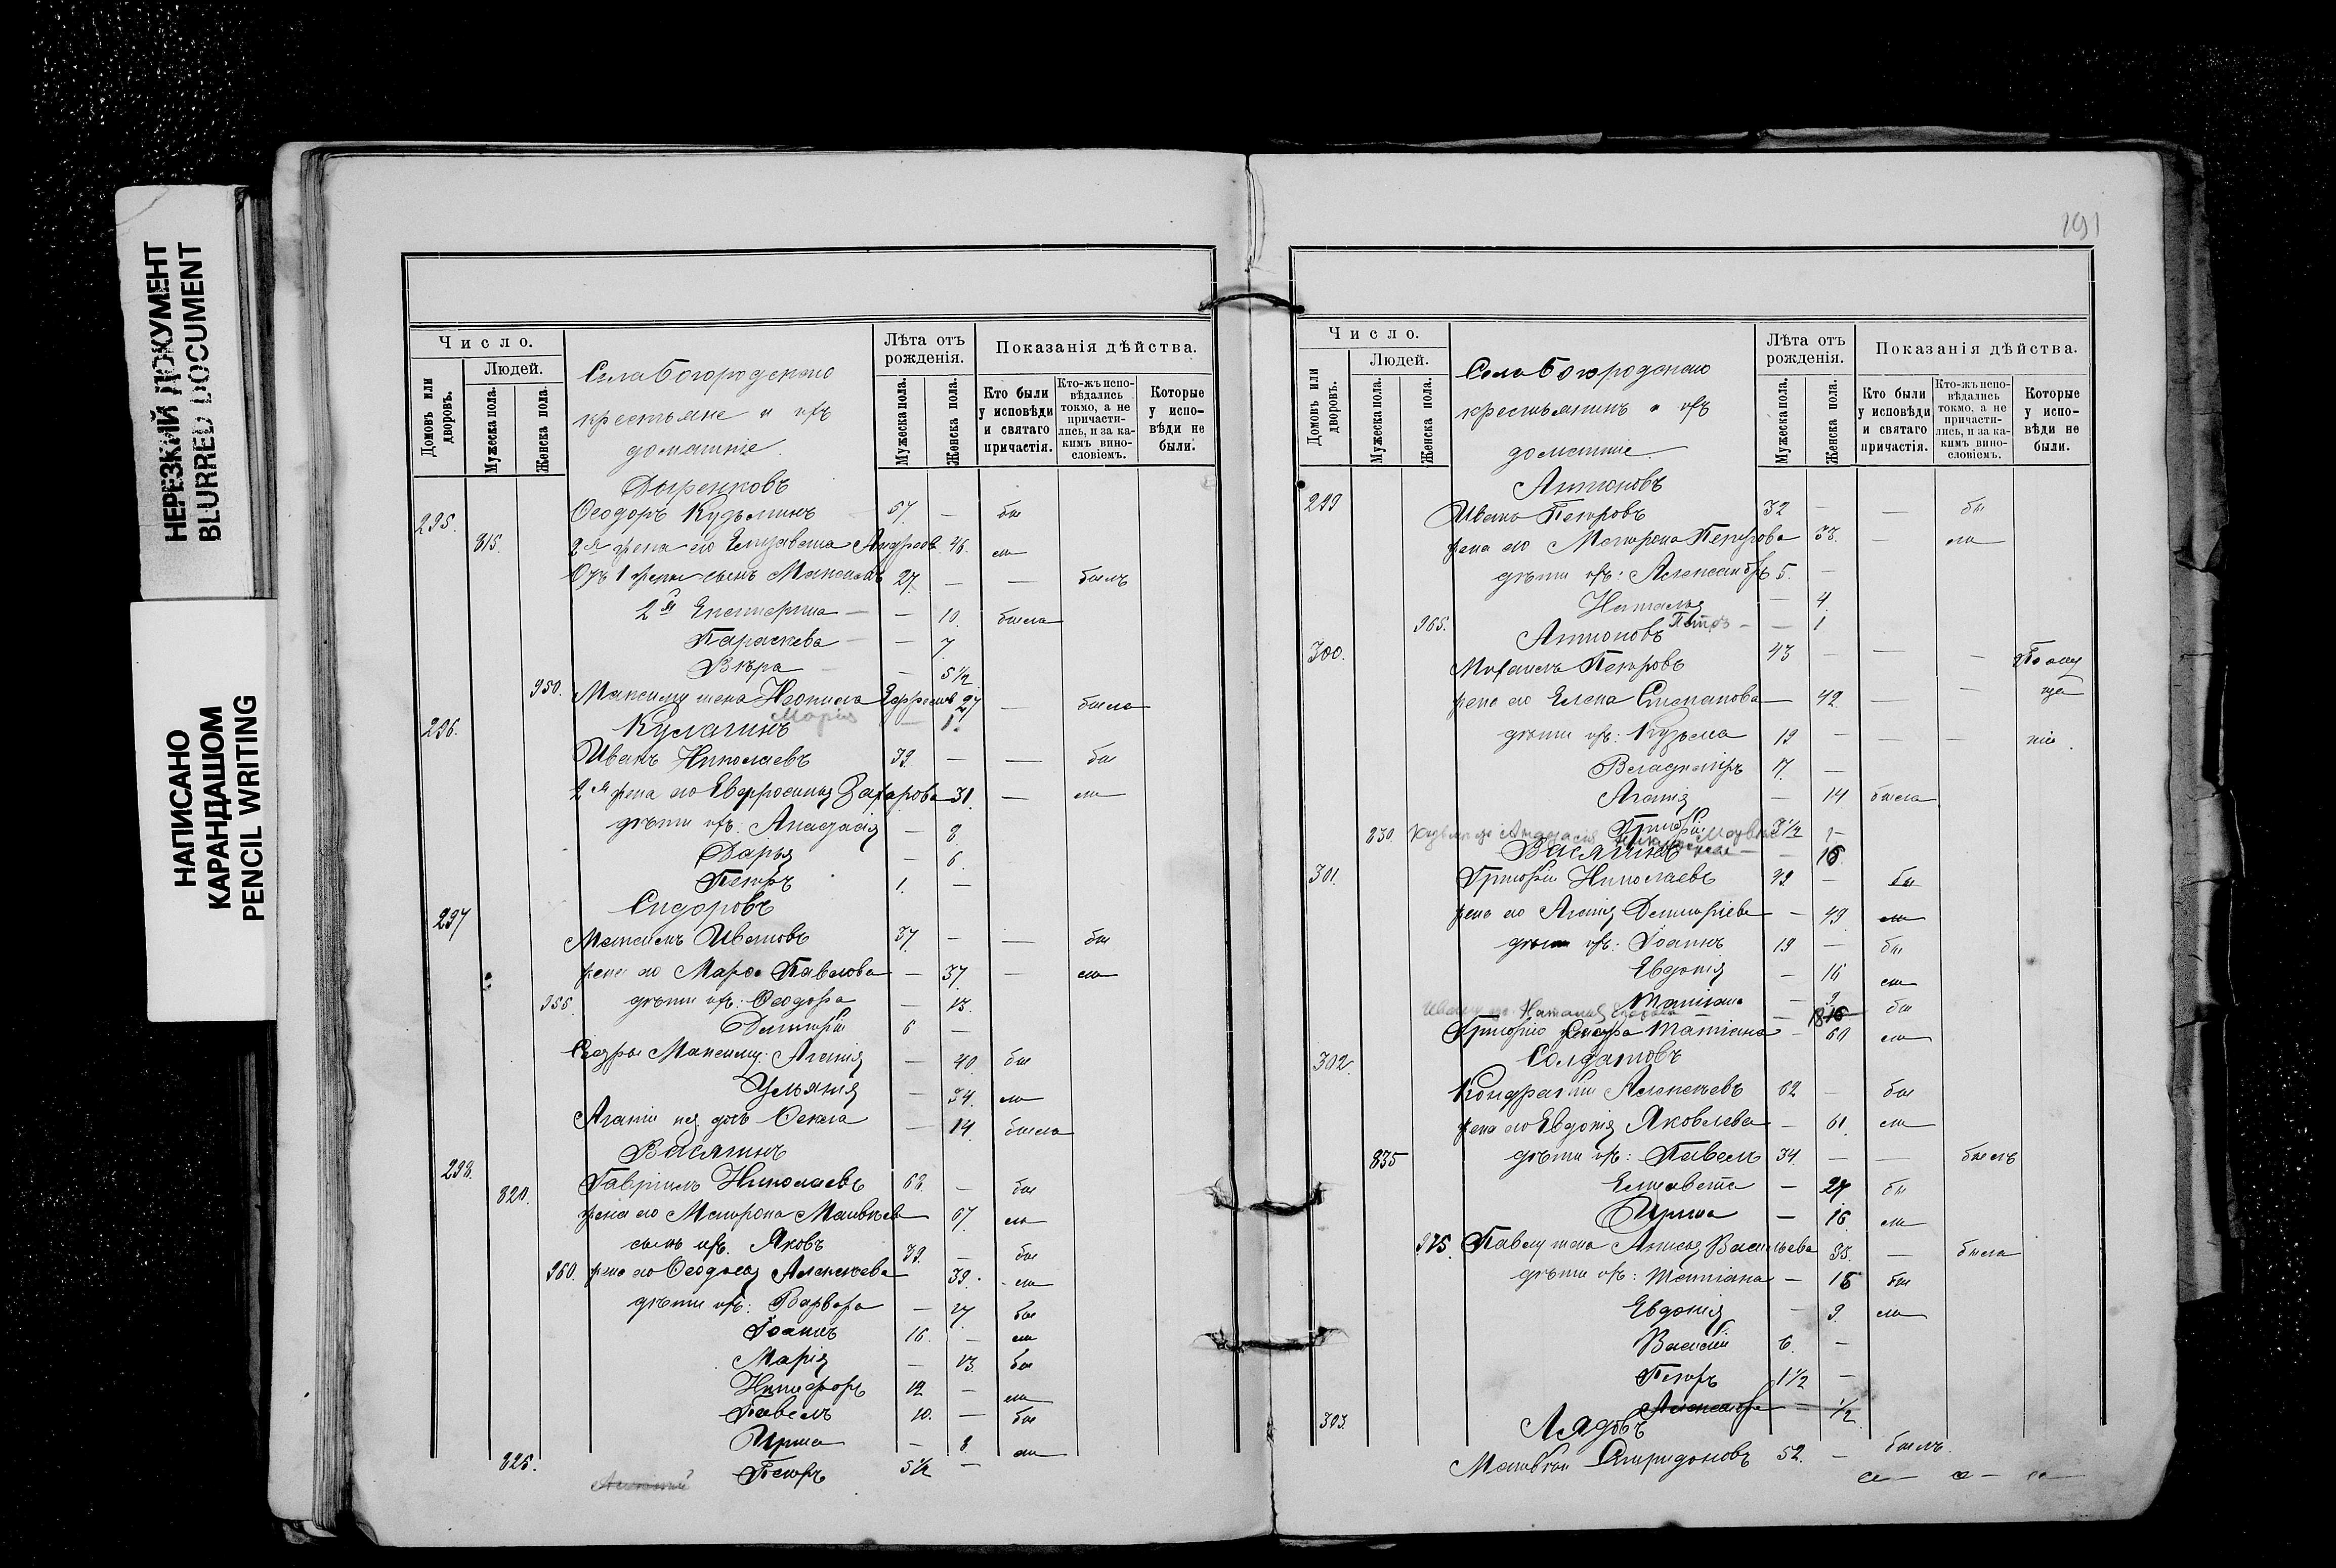 НЕРЕЗКИЙ ДОКУМЕНТ
BLURRED DOCUMENT
НАПИСАНО
КАРАНДАШОМ
PENCIL WRITING
Число.
Людей.
Домовъ или дворовъ.
Мужеска пола.
Женска пола.
Села Богородскаго
крестьяне и ихъ
домашніе.
Лѣта отъ рожденія.
Мужеска пола.
Женска пола.
Показанія дѣйства.
Кто были у исповѣди и святаго причастія.
Кто-жъ исповѣдались токмо, а не причастились, и за какимъ винословіемъ.
Которые у исповѣди не были.
Дыренковъ
295. Ѳеодоръ Кузьминъ 57. — бы
815. 2я жена его Елизавета Андреев 46. ли
Отъ 1 жены сынъ Максимъ 27. — — былъ
2й Екатерина — — 10. была
Параскева — — 7
Вѣра — — 5 1/2
950. Максиму жена Неонила 27 — была
Марія — 1.
296. Кулагинъ
Иванъ Николаевъ 39. — — бы
2я жена его Евфросинья Захарова 31. — ли
дѣти ихъ: Анастасія — 8.
Дарья — 6.
Петръ 1. —
297 Сидоровъ
Максимъ Ивановъ 37. — — бы
жена его Марѳа Павлова — 37. — ли
955. дѣти ихъ: Ѳеодора — 13.
Димитрій 6 —
Сестры Максиму: Агапія — 40. бы
Ульянія — 34. ли
Агапіи нез. дочь Ѳекла — 14. была
298. Васягинъ
820. Гавріилъ Николаевъ 68. — бы
жена его Матрона Матвѣева 67. ли
сынъ ихъ. Яковъ 39. — бы
960. жена его Ѳеодосья Алексѣева 39. ли
дѣти ихъ: Варвара — 17. бы
Іоаннъ 16. — ли
Марія — 13. бы
Никифоръ 12 — ли
Павелъ 10. — бы
Ирина — 8. ли
825. Петръ 5 1/2 —
191
Число.
Людей.
Домовъ или дворовъ.
Мужеска пола.
Женска пола.
Села Богородскаго
крестьянинъ и ихъ
домашніе.
Лѣта отъ рожденія.
Мужеска пола.
Женска пола.
Показанія дѣйства.
Кто были у исповѣди и святаго причастія.
Кто-жъ исповѣдались токмо, а не причастились, и за какимъ винословіемъ.
Которые у исповѣди не были.
Антоновъ
299 Иванъ Петровъ 32 — — бы
жена его Матрона Петрова 33. — ли
дѣти ихъ: Александръ 5. —
Наталья — 4.
965. Петръ — — 1
300. Антоновъ
Михаилъ Петровъ 43 — — — По опу
жена его Елена Степанова — 42 — — ще
дѣти ихъ: Кузьма 19 — — — нію.
Владиміръ 17. —
Агапія — 14 была
830. Григорій 3 1/2 —
301. Васягинъ
Григорій Николаевъ 49. — бы
жена его Агапія Димитріева — 49. ли
дѣти ихъ: Іоаннъ 19 — бы
Евдокія — 16 ли
Татіана — 9.
Ивану ж. Наталья — 18 бы
Григорію сестра Татіана — 60 ли
302. Солдатовъ
Кондратій Алексѣевъ 62 — бы
жена его Евдокія Яковлева — 61. ли
835 дѣти ихъ: Павелъ 34. — — былъ
Елисавета — 27 бы
Ирина — 16. ли
975. Павлу жена Анисья Васильева 35. — была
дѣти ихъ: Татіана — 15 бы
Евдокія — 9. ли
Василій 6. —
Петръ 1 1/2 —
Александра — 1/2
303. Лядовъ
Матвѣй Спиридоновъ 52. — былъ.